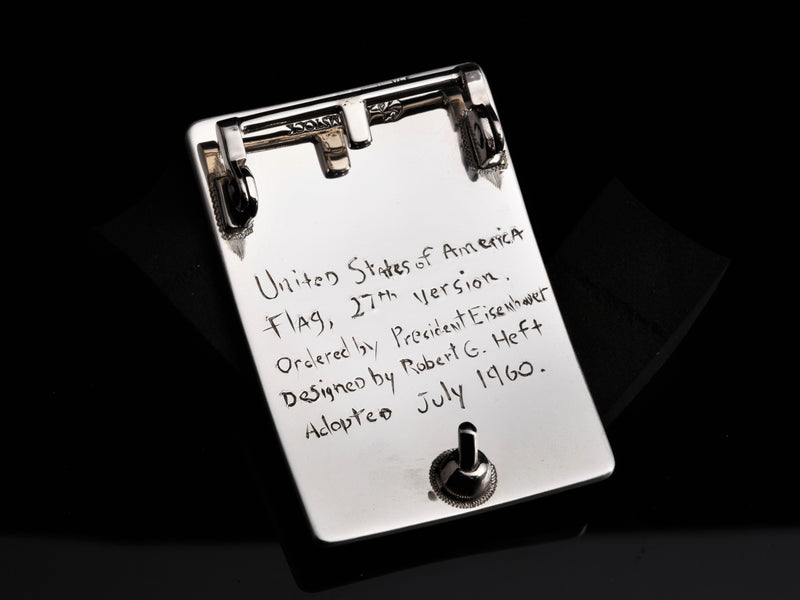 United States of America
Flag, 27th version.
Ordered by President Eisenhower
Designed by Robert G. Heft
Adopted July 1960.